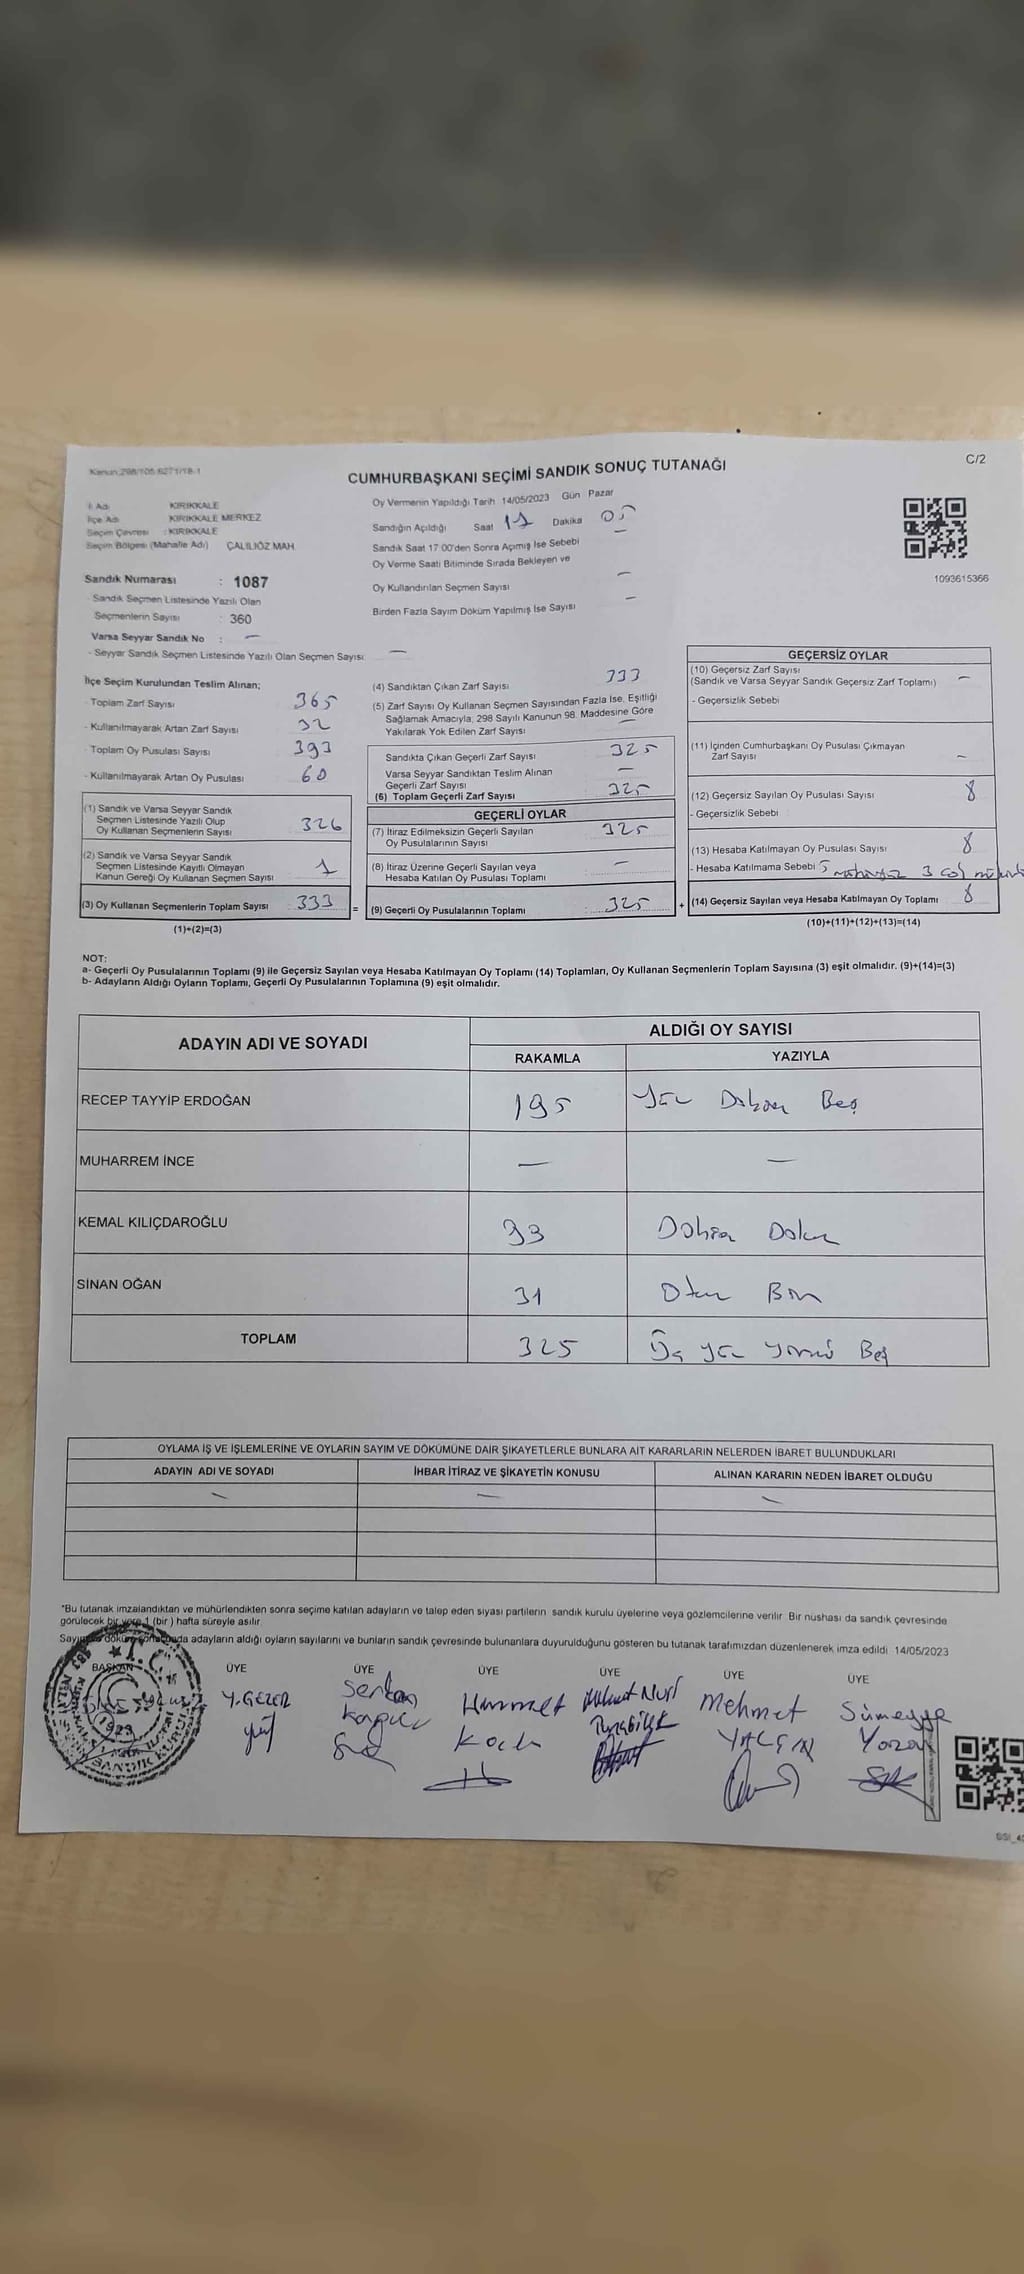 Kanun:298/105,6271/18-1
CUMHURBAŞKANI SEÇİMİ SANDIK SONUÇ TUTANAĞI
C/2
İl Adı KIRIKKALE
İlçe Adı KIRIKKALE MERKEZ
Seçim Çevresi : KIRIKKALE
Seçim Bölgesi (Mahalle Adı) ÇALILIÖZ MAH.
Oy Vermenin Yapıldığı Tarih 14/05/2023 Gün Pazar
Sandığın Açıldığı Saat 17 Dakika 05
Sandık Saat 17:00'den Sonra Açımış İse Sebebi —
Oy Verme Saati Bitiminde Sırada Bekleyen ve
Oy Kullandırılan Seçmen Sayısı —
Birden Fazla Sayım Döküm Yapılmış İse Sayısı —
1093615366
Sandık Numarası : 1087
- Sandık Seçmen Listesinde Yazılı Olan
Seçmenlerin Sayısı : 360
Varsa Seyyar Sandık No : —
- Seyyar Sandık Seçmen Listesinde Yazılı Olan Seçmen Sayısı —
İlçe Seçim Kurulundan Teslim Alınan;
- Toplam Zarf Sayısı 365
- Kullanılmayarak Artan Zarf Sayısı 32
- Toplam Oy Pusulası Sayısı 393
- Kullanılmayarak Artan Oy Pusulası 60
(1) Sandık ve Varsa Seyyar Sandık
Seçmen Listesinde Yazılı Olup
Oy Kullanan Seçmenlerin Sayısı 326
(2) Sandık ve Varsa Seyyar Sandık
Seçmen Listesinde Kayıtlı Olmayan
Kanun Gereği Oy Kullanan Seçmen Sayısı
(3) Oy Kullanan Seçmenlerin Toplam Sayısı 333 =
(1)+(2)=(3)
(4) Sandıktan Çıkan Zarf Sayısı 333
(5) Zarf Sayısı Oy Kullanan Seçmen Sayısından Fazla İse, Eşitliği
Sağlamak Amacıyla; 298 Sayılı Kanunun 98. Maddesine Göre
Yakılarak Yok Edilen Zarf Sayısı —
Sandıkta Çıkan Geçerli Zarf Sayısı 325
Varsa Seyyar Sandıktan Teslim Alınan
Geçerli Zarf Sayısı —
(6) Toplam Geçerli Zarf Sayısı 325
GEÇERLİ OYLAR
(7) İtiraz Edilmeksizin Geçerli Sayılan
Oy Pusulalarının Sayısı 325
(8) İtiraz Üzerine Geçerli Sayılan veya
Hesaba Katılan Oy Pusulası Toplamı —
(9) Geçerli Oy Pusulalarının Toplamı 325 +
GEÇERSİZ OYLAR
(10) Geçersiz Zarf Sayısı
(Sandık ve Varsa Seyyar Sandık Geçersiz Zarf Toplamı) —
- Geçersizlik Sebebi
(11) İçinden Cumhurbaşkanı Oy Pusulası Çıkmayan
Zarf Sayısı —
(12) Geçersiz Sayılan Oy Pusulası Sayısı 8
- Geçersizlik Sebebi
(13) Hesaba Katılmayan Oy Pusulası Sayısı 8
- Hesaba Katılmama Sebebi 5 mühürsüz 3
(14) Geçersiz Sayılan veya Hesaba Katılmayan Oy Toplamı 8
(10)+(11)+(12)+(13)=(14)
NOT:
a- Geçerli Oy Pusulalarının Toplamı (9) ile Geçersiz Sayılan veya Hesaba Katılmayan Oy Toplamı (14) Toplamları, Oy Kullanan Seçmenlerin Toplam Sayısına (3) eşit olmalıdır. (9)+(14)=(3)
b- Adayların Aldığı Oyların Toplamı, Geçerli Oy Pusulalarının Toplamına (9) eşit olmalıdır.
ADAYIN ADI VE SOYADI
ALDIĞI OY SAYISI
RAKAMLA YAZIYLA
RECEP TAYYİP ERDOĞAN 195 Yüz Doksan Beş
MUHARREM İNCE — —
KEMAL KILIÇDAROĞLU 99 Doksan Dokuz
SİNAN OĞAN 31 Otuz Bir
TOPLAM 325 Üç Yüz Yirmi Beş
OYLAMA İŞ VE İŞLEMLERİNE VE OYLARIN SAYIM VE DÖKÜMÜNE DAİR ŞİKAYETLERLE BUNLARA AİT KARARLARIN NELERDEN İBARET BULUNDUKLARI
ADAYIN ADI VE SOYADI İHBAR İTİRAZ VE ŞİKAYETİN KONUSU ALINAN KARARIN NEDEN İBARET OLDUĞU
— — —
*Bu tutanak imzalandıktan ve mühürlendikten sonra seçime katılan adayların ve talep eden siyasi partilerin sandık kurulu üyelerine veya gözlemcilerine verilir. Bir nüshası da sandık çevresinde
görülecek bir yere 1 (bir) hafta süreyle asılır.
Sayım ve döküm sonucunda adayların aldığı oyların sayılarını ve bunların sandık çevresinde bulunanlara duyurulduğunu gösteren bu tutanak tarafımızdan düzenlenerek imza edildi. 14/05/2023
BAŞKAN ÜYE ÜYE ÜYE ÜYE ÜYE ÜYE
Y. GEZER Serkan Hammet Nuri Mehmet Sümeyye
Koch YALÇIN Yazar
T.C.
1923
SANDIK KURULU